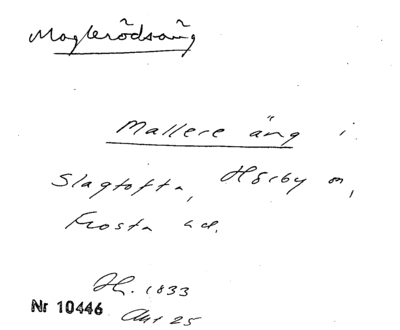 Maglerödsäng
Mallere äng i
Slagtofta, Hörby sn,
Frosta hd.
1833
Nr 10446
Akt 25